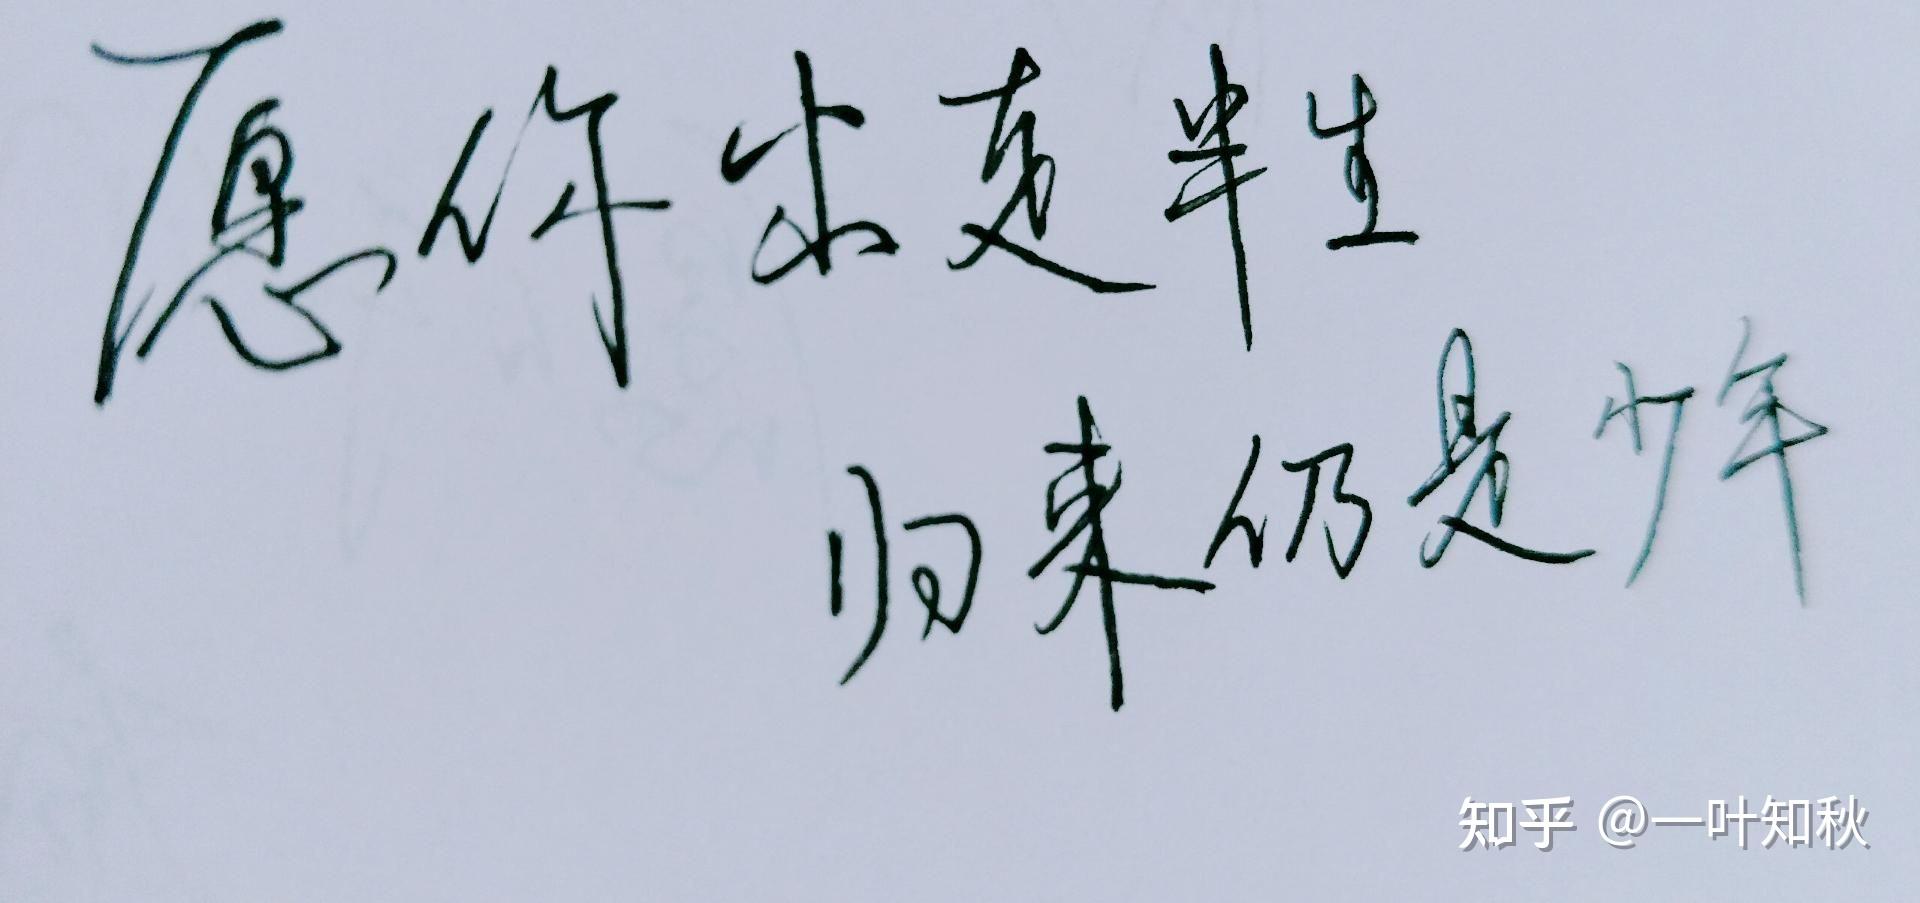 愿你出走半生
归来仍是少年
知乎 @一叶知秋